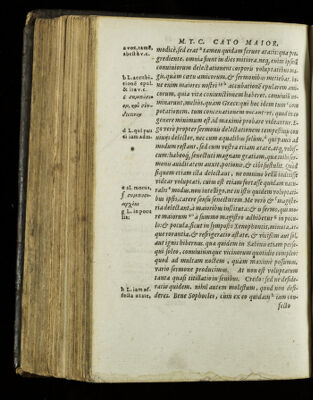 M. T. C. CATO MAIOR.
modice, sed erat tamen quidam feruor ætatis: qua progrediente
omnia fiunt in dies mitiora. neq, enim ipsorũ
conuiuiorum delectationem corporis uoluptatibus magis,
quàm cœtu amicorum, & sermonibus metiebar. bene
enim maiores nostri accubationē epularem amicorum,
quia vitæ coniunctionem haberet, conuiuiũ nominarunt,
meliùs, quàm Græci: qui hoc idem tum compotationem,
tum concœnationem vocant: vt, quod in eo
genere minimum est, id maximè probare videantur. Ego
verò propter sermonis delectationem tempestiuis conuiuijs
delector, nec cum æqualibus solùm, qui pauci admodum
restant, sed cum vestra etiam ætate, atq, vobiscum:
habeoq, senectuti magnam gratiam, quæ mihi sermonis
auiditatem auxit, potionis, & cibi sustulit. Quòd
si quem etiam ista delectant, ne omnino bellũ indixisse
videar voluptati, cuius est etiam fortasse quidam naturalis
modus, non intelligo, ne in istis quidem voluptatibus
ipsis, carere sensu senectutem. Me verò & magisteria
delectant, à maioribus instituta: & is sermo, qui more
maiorum à summo magistro adhibetur in poculis:
& pocula, sicut in symposio Xenophontis, minuta, atque
rorantia, & refrigeratio æstate, & vicissim aut sol,
aut ignis hibernus. quæ quidem in Sabinis etiam persequi
soleo, conuiuiumque vicinorum quotidie compleo:
quod ad multam noctem, quàm maximè possumus,
vario sermone producimus. At non est voluptatum
tanta quasi titillatio in senibus. Credo: sed ne desideratio
quidem. nihil autem molestum, quod non desideres.
Bene Sophocles, cùm ex eo quidam iam confecto
a voc. tamē,
abest à v. c.